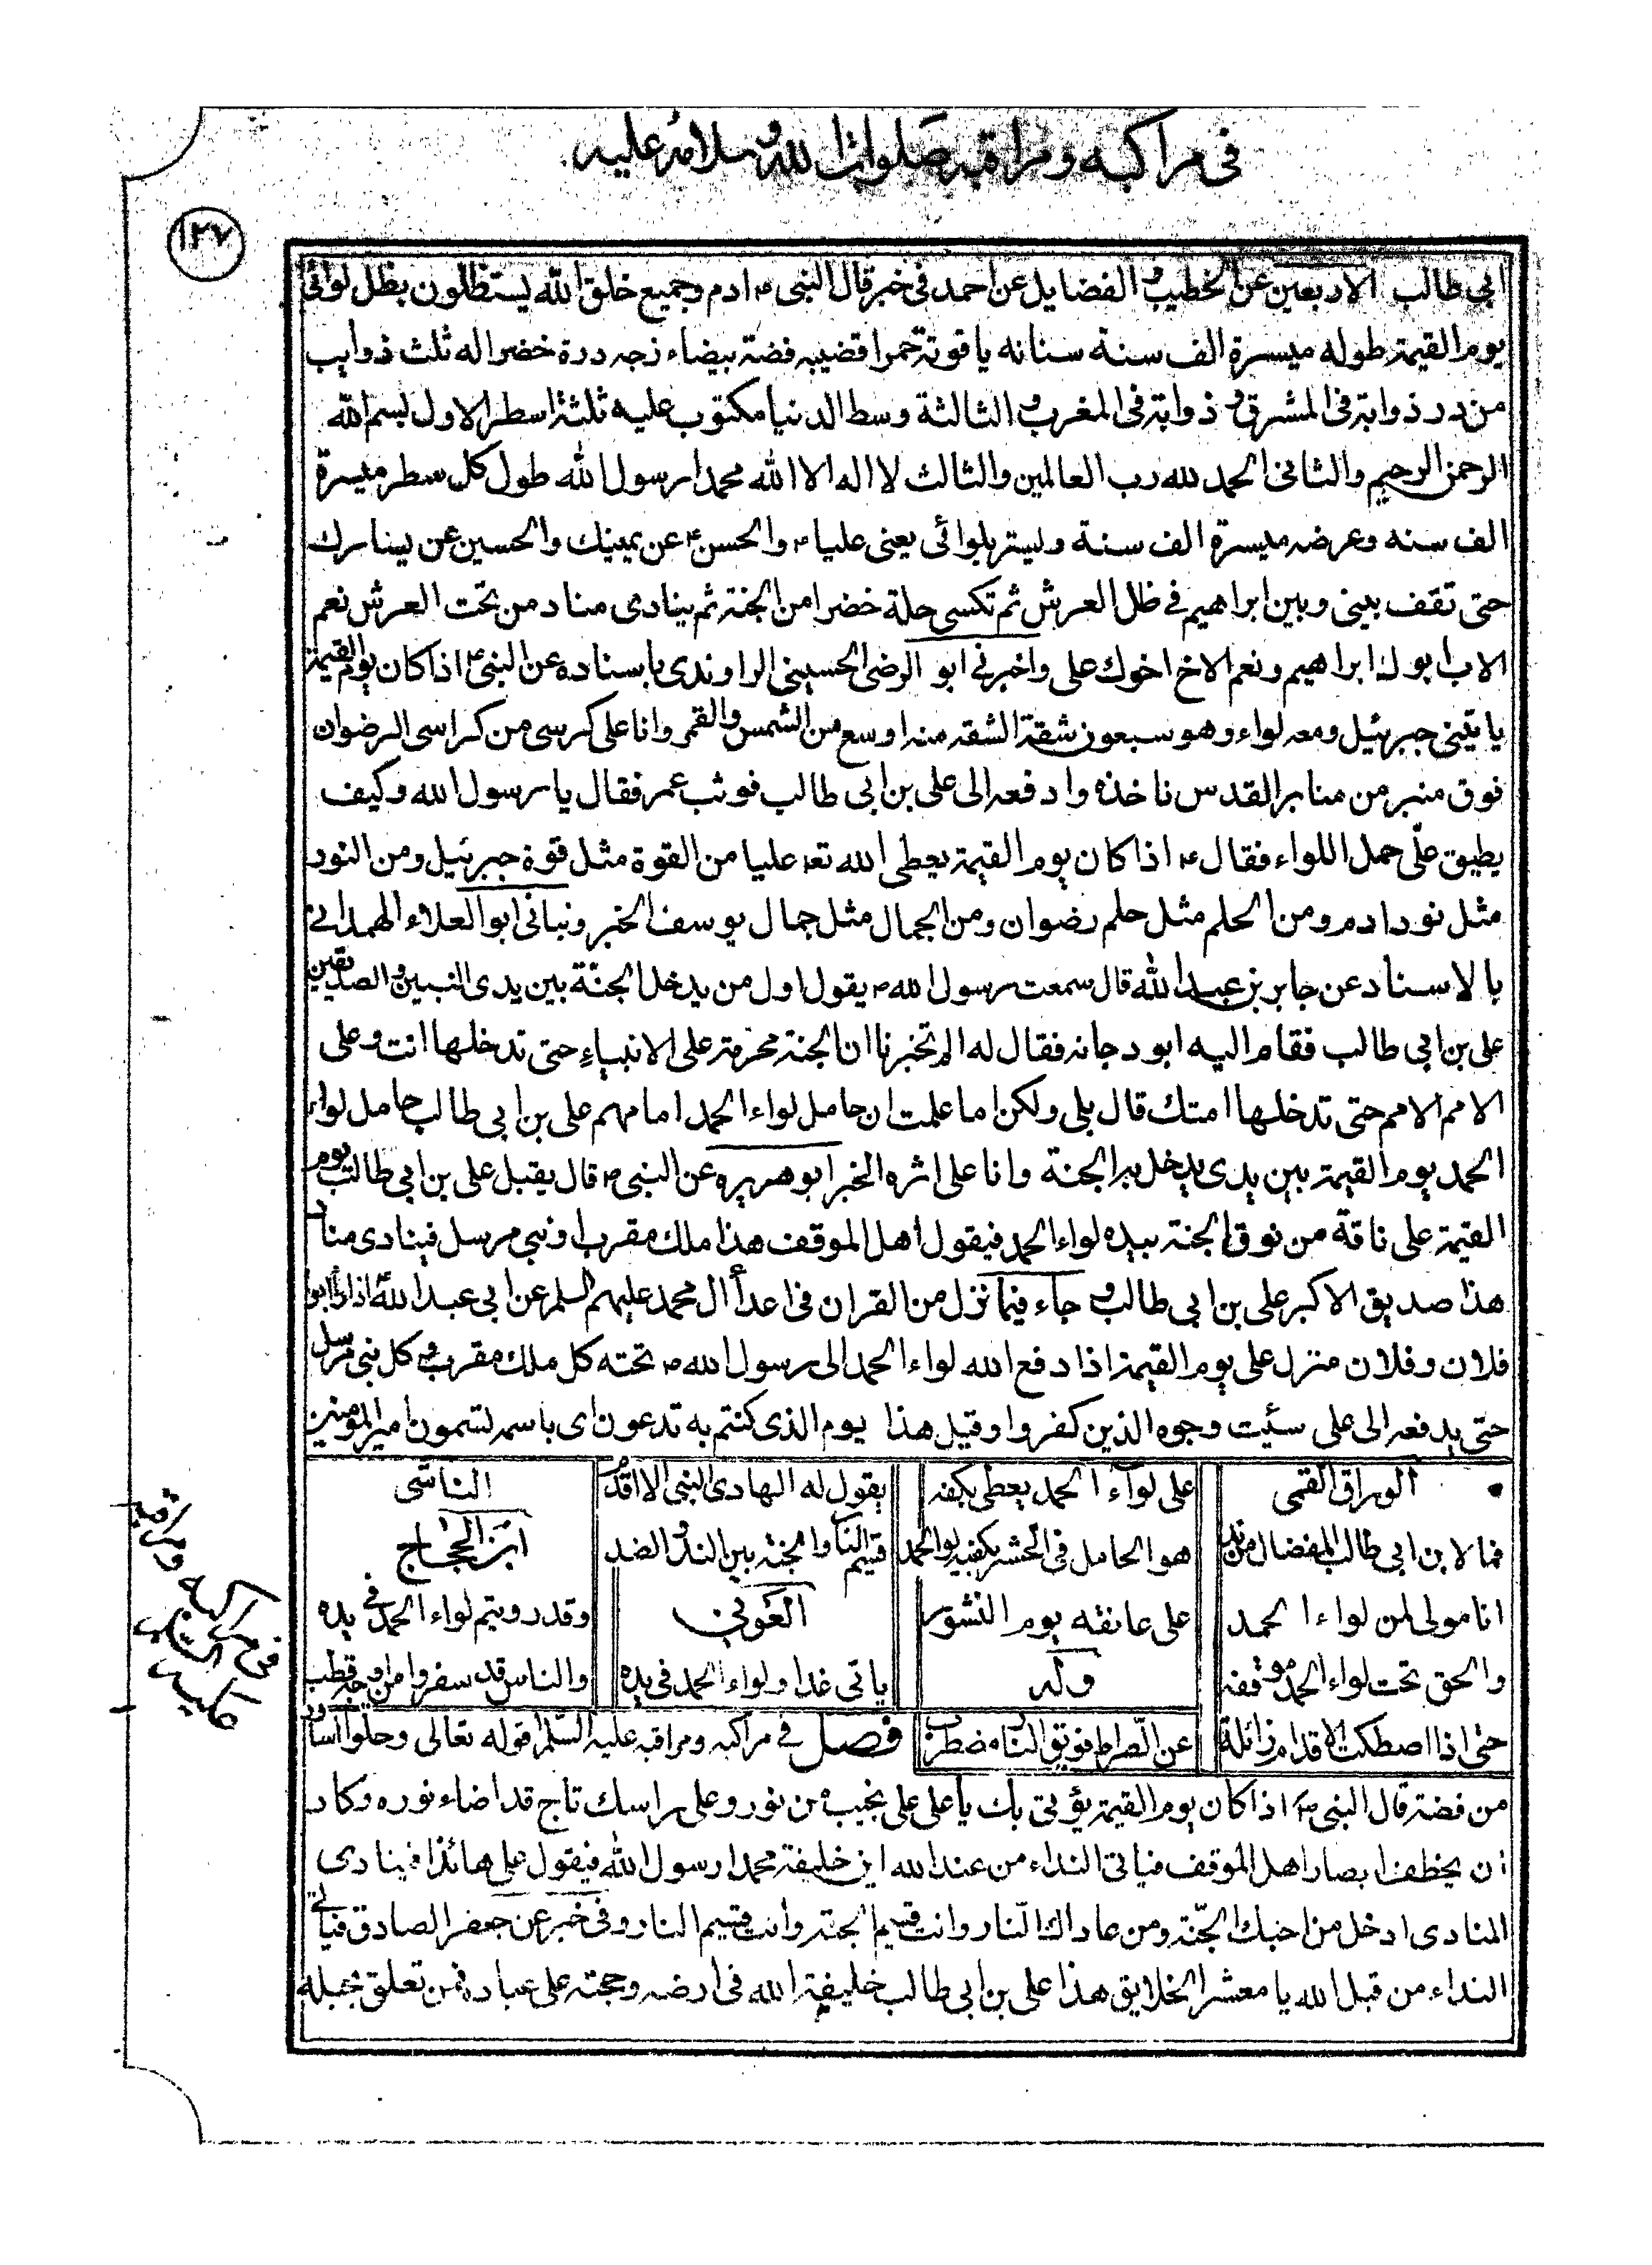 في مراكبه ومراقبه صلوات الله وسلامه عليه
١٢٧
ابي طالب الاربعين عن الخطيب و الفضايل عن احمد في خبر قال النبي ص ادم وجميع خلق الله يستظلون بظل لوائي
يوم القيمة طوله مسيرة الف سنة سنانه ياقوتة حمرا قضيبه فضة بيضاء زجه درة خضرا له ثلث ذوايب
من در ذوابة في المشرق و ذوابة في المغرب و الثالثة وسط الدنيا مكتوب عليه ثلثة اسطر الاول بسم الله
الرحمن الرحيم والثاني الحمد لله رب العالمين والثالث لا اله الا الله محمد رسول الله طول كل سطر مسيرة
الف سنه وعرضه مسيرة الف سنة وليستر بلوائي يعني عليا ع والحسن ع عن يمينك والحسين عن يسارك
حتى تقف بيني وبين ابراهيم في ظل العرش ثم تكسى حلة خضرا من الجنة ثم ينادى مناد من تحت العرش نعم
الاب ابوك ابراهيم ونعم الاخ اخوك على واخبرني ابو الرضى الحسيني الراوندى باسناده عن النبي ع اذا كان يوم القيمة
ياتيني جبرئيل ومعه لواء وهو سبعون شقة الشقه منه اوسع من الشمس والقمر وانا على كرسي من كراسي الرضوان
فوق منبر من منابر القدس ناخذه وادفعه الى على بن ابي طالب فوثب عمر فقال يا رسول الله وكيف
يطيق علّى حمل اللواء فقال ع اذا كان يوم القيمة يعطى الله تع عليا من القوة مثل قوة جبرئيل ومن النور
مثل نور ادم ومن الحلم مثل حلم رضوان ومن الجمال مثل جمال يوسف الخبر ونبانى ابو العلاء الهمدانى
بالاسناد عن جابر بن عبد الله قال سمعت رسول الله ص يقول اول من يدخل الجنّة بين يدى النبيين و الصديقين
على بن ابي طالب فقام اليه ابو دجانه فقال له الم تخبرنا ان الجنة محرمة على الانبياء حتى تدخلها انت وعلى
الامم الامم حتى تدخلها امتك قال بلى ولكن اما علمت ان حامل لواء الحمد امامهم على بن ابي طالب حامل لواء
الحمد يوم القيمة بين يدى يدخل به الجنة وانا على اثره الخبر ابو هريره عن النبي ص قال يقبل على بن ابي طالب يوم
القيمة على ناقة من نوق الجنة بيده لواء الحمد فيقول اهل الموقف هذا ملك مقرب او نبي مرسل فينادى مناد
هذا صديق الاكبر على بن ابي طالب و جاء فيما نزل من القران في اعدأ ال محمد عليهم السلم عن ابي عبد الله اذا رأ ابو
فلان وفلان منزل على يوم القيمة اذا دفع الله لواء الحمد الى رسول الله ص تحته كل ملك مقرب و كل نبي مرسل
حتى يدفعه الى على سئيت وجوه الذين كفروا وقيل هذا يوم الذى كنتم به تدعون اى باسمه لتسمون امير المومنين
الوراق القمى
على لواء الحمد يعطى بكفه
يقول له الهادى النبي الا اقد
الناشى
فما لابن ابي طالب المفضال من ند
هو الحامل في الحشر بكفيه لوا الحمد
قسيم النار والجنة بين الند والضد
ابن الحجاج
انا مولى لمن لواء الحمد
على عاتقه يوم النشور
العونى
وقدر ويتم لواء الحمد في يده
والحق تحت لواء الحمد موقفه
وله
ياتى غدا ولواء الحمد في يده
والناس قد سفروا من وجه قطب
حتى اذا اصطكت الاقدام زائلة
عن الصراط فويق النار مضطرب
فصل في مراكبه ومراقبه عليه السّلم قوله تعالى وحلوا اساور
من فضة قال النبي ص اذا كان يوم القيمة يؤتى بك يا على على نجيب من نور وعلى راسك تاج قد اضاء نوره وكاد
ان يخطف ابصار اهل الموقف فياتى النداء من عند الله اين خليفة محمد رسول الله فيقول على هائذا فينادى
المنادى ادخل من احبك الجّنة ومن عاداك النّار وانت قسيم الجنة وانت قسيم النار وفي خبر عن جعفر الصادق فياتى
النداء من قبل الله يا معشر الخلايق هذا على بن ابي طالب خليفة الله في ارضه وحجته على عباده فمن تعلق بحبله